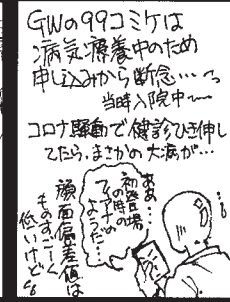 GWの99コミケは
病気療養中のため
申し込みから断念…
当時入院中〜
コロナ騒動で健診ひき伸し
てたら、まさかの大病が…
ああ…
初登場
の時の
フィアナの
ようだ…
顔面偏差値は
ものすごーく
低いけど